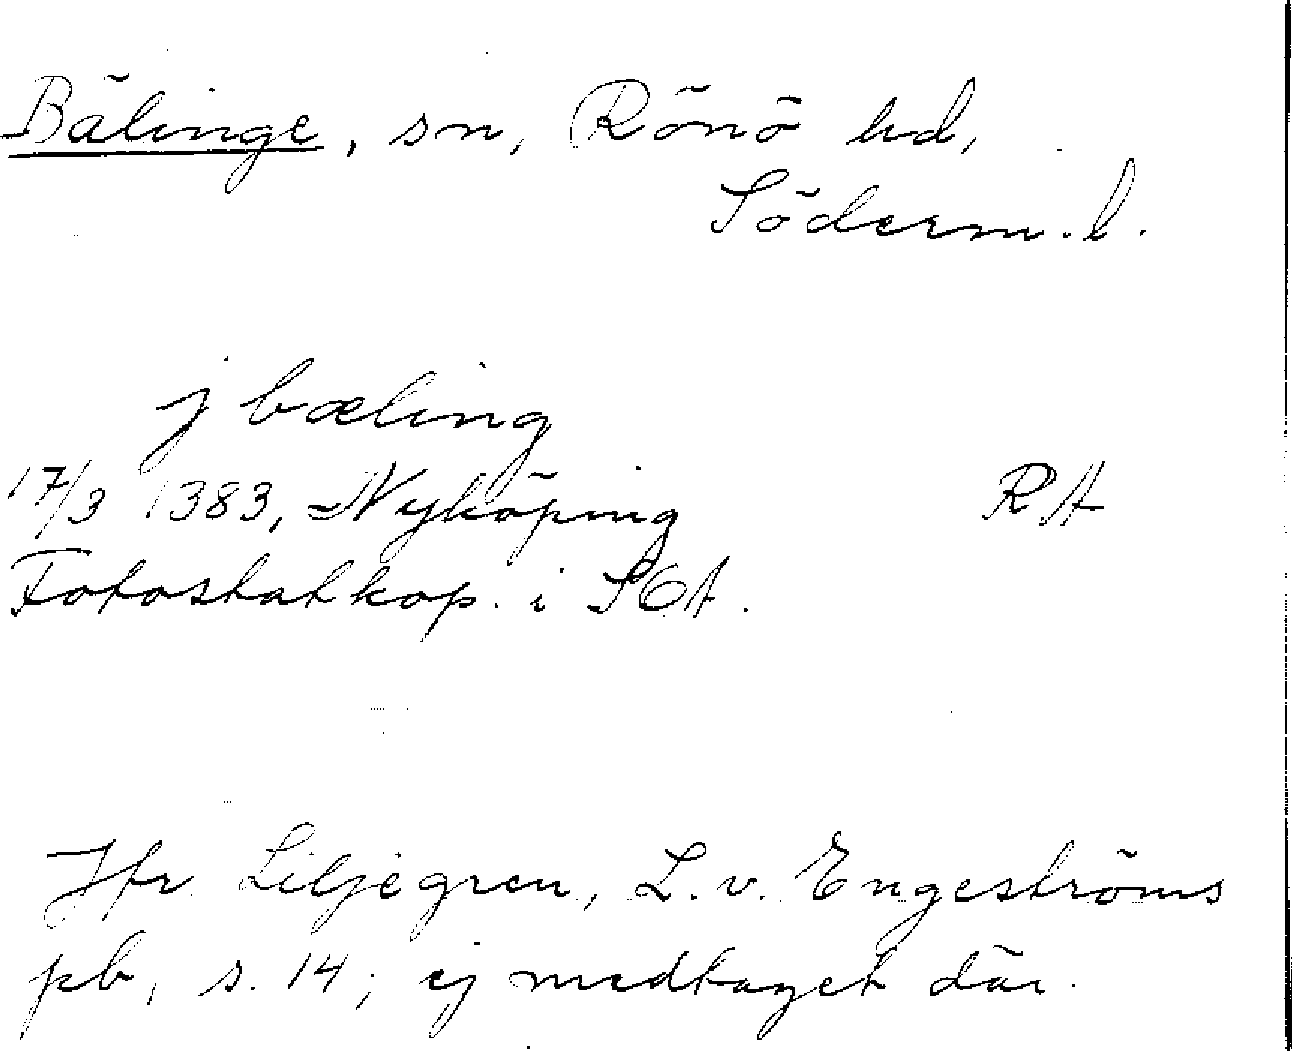 Bälinge, sn, Rönö hd,
Söderm. l.
j bæling
17/3 1383, Nyköping RA
Fotostatkop. i SOA.
Jfr Liljegren, L. v. Engeströms
pb, s. 14; ej medtaget där.